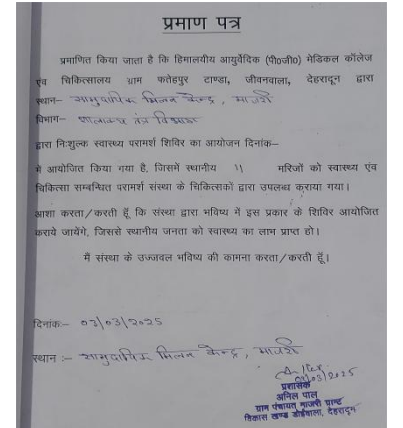 प्रमाण पत्र
प्रमाणित किया जाता है कि हिमालयीय आयुर्वेदिक (पी०जी०) मेडिकल कॉलेज
एंव चिकित्सालय ग्राम फतेहपुर टाण्डा, जीवनवाला, देहरादून द्वारा
स्थान– सामुदायिक मिलन केन्द्र, माजरी
विभाग– शालाक्य तंत्र विभाग
द्वारा निःशुल्क स्वास्थ्य परामर्श शिविर का आयोजन दिनांक–
में आयोजित किया गया है, जिसमें स्थानीय 11 मरिजों को स्वास्थ्य एंव
चिकित्सा सम्बन्धित परामर्श संस्था के चिकित्सकों द्वारा उपलब्ध कराया गया।
आशा करता/करती हूँ कि संस्था द्वारा भविष्य में इस प्रकार के शिविर आयोजित
कराये जायेंगे, जिससे स्थानीय जनता को स्वास्थ्य का लाभ प्राप्त हो।
मैं संस्था के उज्जवल भविष्य की कामना करता/करती हूँ।
दिनांक:– 03/03/2025
स्थान :– सामुदायिक मिलन केन्द्र, माजरी
03/03/2025
प्रशासक
अनिल पाल
ग्राम पंचायत माजरी ग्रान्ट
विकास खण्ड डोईवाला, देहरादून